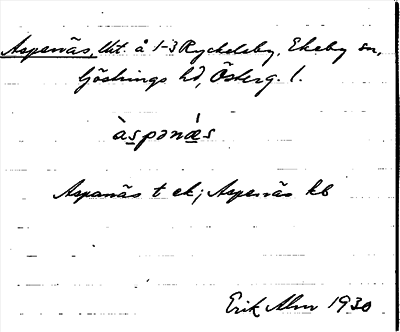 Aspenäs, Utt. å 1-3 Ryckelsby, Ekeby sn,
Göstrings hd, Österg. l.
àspənæ̀s
Aspanäs t ek; Aspenäs kb
Erik Alm 1930